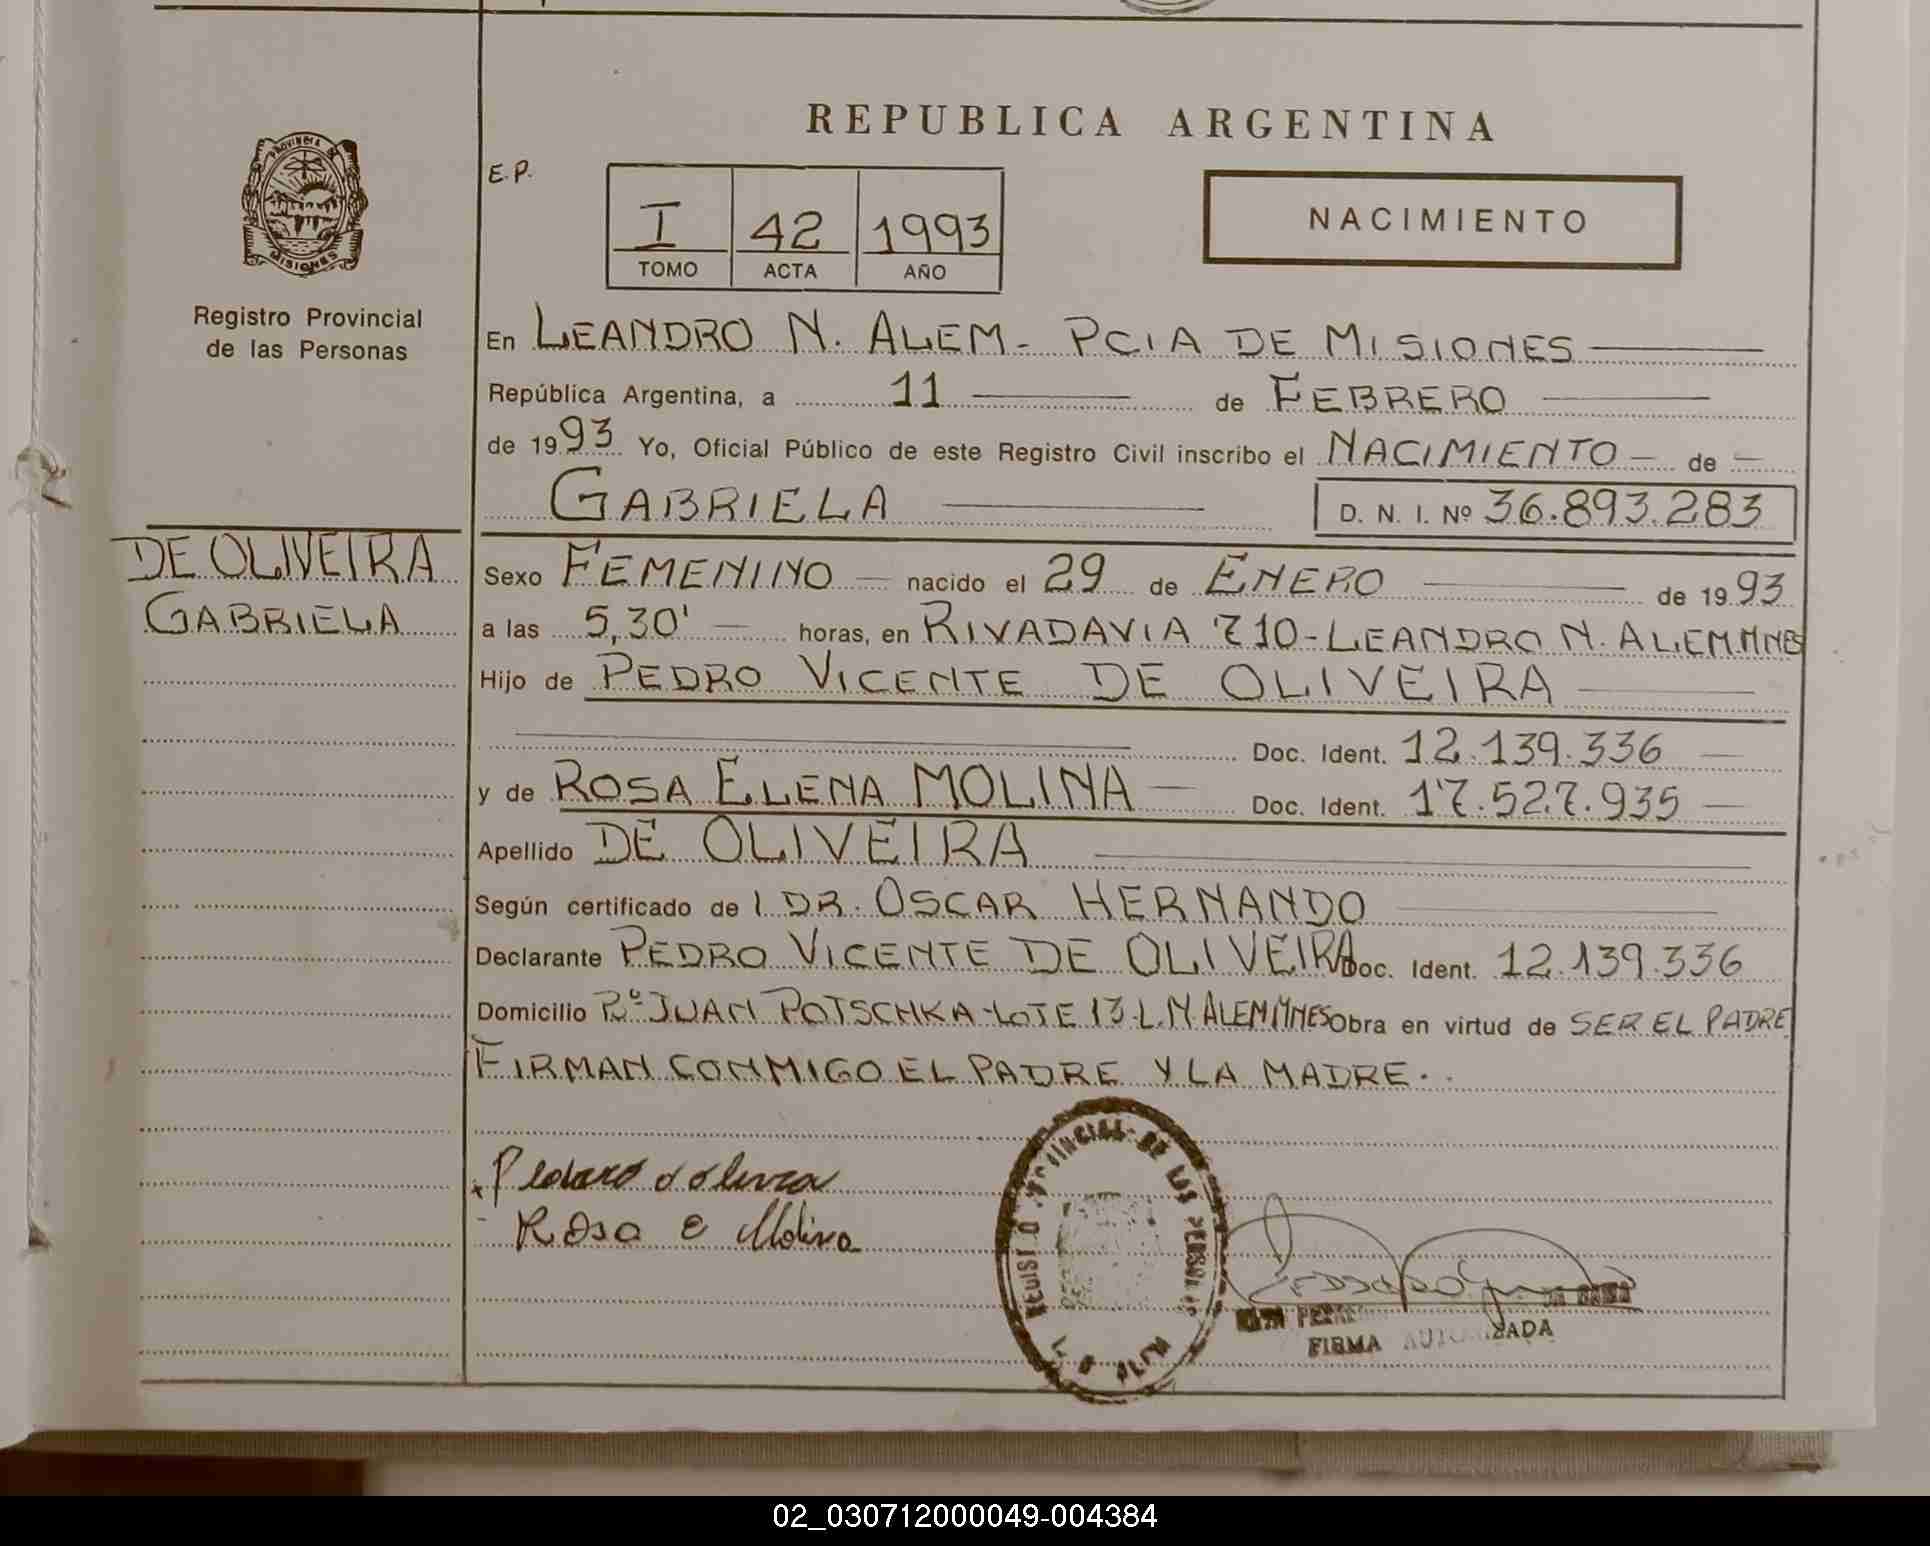 REPUBLICA ARGENTINA
PROVINCIA DE
MISIONES
Registro Provincial
de las Personas
E.P.
I 42 1993
TOMO ACTA AÑO
NACIMIENTO
En LEANDRO N. ALEM - PCIA DE MISIONES
República Argentina, a 11 de FEBRERO
de 1993 Yo, Oficial Público de este Registro Civil inscribo el NACIMIENTO - de -
GABRIELA D. N. I. Nº 36.893.283
DE OLIVEIRA
GABRIELA
Sexo FEMENINO - nacido el 29 de ENERO de 1993
a las 5,30' - horas, en RIVADAVIA 710 - LEANDRO N. ALEM.MNES
Hijo de PEDRO VICENTE DE OLIVEIRA
Doc. Ident. 12.139.336
y de ROSA ELENA MOLINA - Doc. Ident. 17.527.935
Apellido DE OLIVEIRA
Según certificado de l DR. OSCAR HERNANDO
Declarante PEDRO VICENTE DE OLIVEIRA Doc. Ident. 12.139.336
Domicilio Bº JUAN POTSCHKA - LOTE 13 - L.N. ALEM MNES Obra en virtud de SER EL PADRE
FIRMAN CONMIGO EL PADRE Y LA MADRE.
Rosa E Molina
REGISTRO PROVINCIAL DE LAS PERSONAS
FIRMA AUTORIZADA
02_030712000049-004384